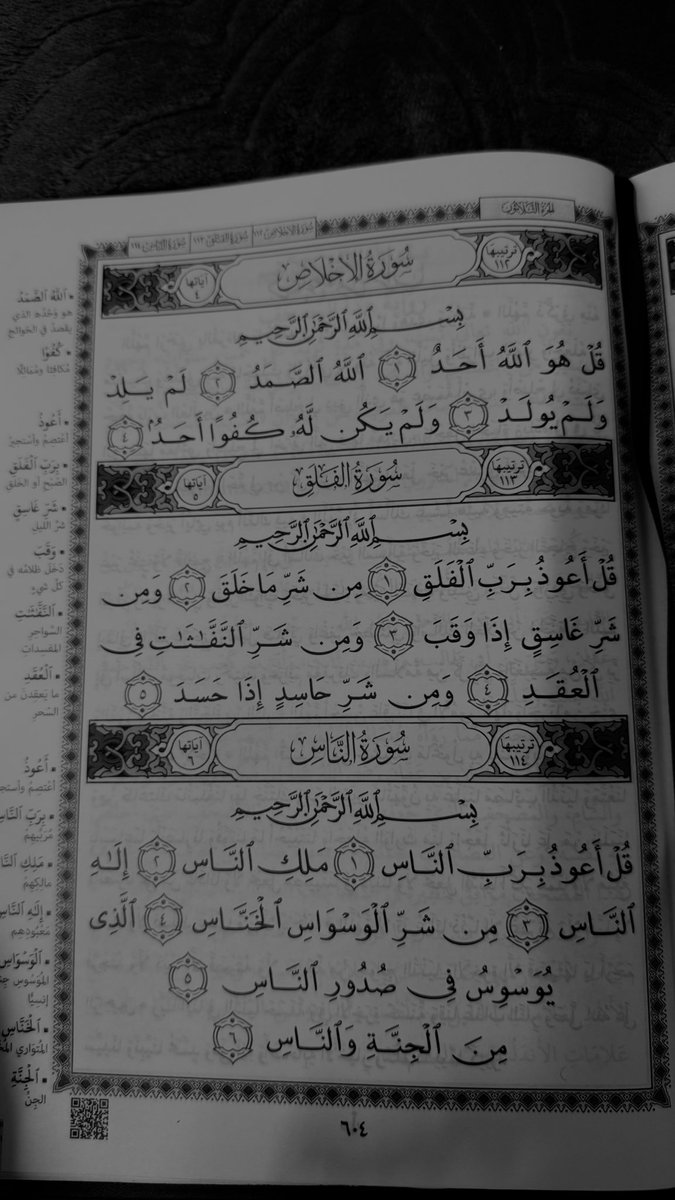 الجزء الثلاثون
سورة الإخلاص ١١٢ سورة الفلق ١١٣ سورة الناس ١١٤
ترتيبها ١١٢ سُورَةُ الإِخْلَاصِ آياتها ٤
بِسْمِ ٱللَّهِ ٱلرَّحْمَٰنِ ٱلرَّحِيمِ
قُلْ هُوَ ٱللَّهُ أَحَدٌ ١ ٱللَّهُ ٱلصَّمَدُ ٢ لَمْ يَلِدْ
وَلَمْ يُولَدْ ٣ وَلَمْ يَكُن لَّهُۥ كُفُوًا أَحَدٌۢ ٤
ترتيبها ١١٣ سُورَةُ الفَلَقِ آياتها ٥
بِسْمِ ٱللَّهِ ٱلرَّحْمَٰنِ ٱلرَّحِيمِ
قُلْ أَعُوذُ بِرَبِّ ٱلْفَلَقِ ١ مِن شَرِّ مَا خَلَقَ ٢ وَمِن
شَرِّ غَاسِقٍ إِذَا وَقَبَ ٣ وَمِن شَرِّ ٱلنَّفَّٰثَٰتِ فِى
ٱلْعُقَدِ ٤ وَمِن شَرِّ حَاسِدٍ إِذَا حَسَدَ ٥
ترتيبها ١١٤ سُورَةُ النَّاسِ آياتها ٦
بِسْمِ ٱللَّهِ ٱلرَّحْمَٰنِ ٱلرَّحِيمِ
قُلْ أَعُوذُ بِرَبِّ ٱلنَّاسِ ١ مَلِكِ ٱلنَّاسِ ٢ إِلَٰهِ
ٱلنَّاسِ ٣ مِن شَرِّ ٱلْوَسْوَاسِ ٱلْخَنَّاسِ ٤ ٱلَّذِى
يُوَسْوِسُ فِى صُدُورِ ٱلنَّاسِ ٥
مِنَ ٱلْجِنَّةِ وَٱلنَّاسِ ٦
ٱللَّهُ ٱلصَّمَدُ
هو وحْدَه الذي
يقصد في الحوائج
كُفُوًا
مُكافئًا ومُمَاثِلًا
أَعُوذُ
أعتصم وأستجير
بِرَبِّ ٱلْفَلَقِ
الصُّبح أو الخلق
شَرِّ غَاسِقٍ
شرّ الليل
وَقَبَ
دخل ظلامُه في
كلّ شيء
ٱلنَّفَّٰثَٰتِ
السَّواحر
المفسدات
ٱلْعُقَدِ
ما يعقدن من
السّحر
أَعُوذُ
أعتصم وأستجي
بِرَبِّ ٱلنَّاسِ
مُرَبِّيهم
مَلِكِ ٱلنَّا
مالِكِهم
إِلَٰهِ ٱلنَّاسِ
مَعْبُودِهِم
ٱلْوَسْوَاسِ
المُوَسْوِسِ
إنسيًّا
ٱلْخَنَّاسِ
المُتواري
ٱلْجِنَّةِ
الجنّ
٦٠٤